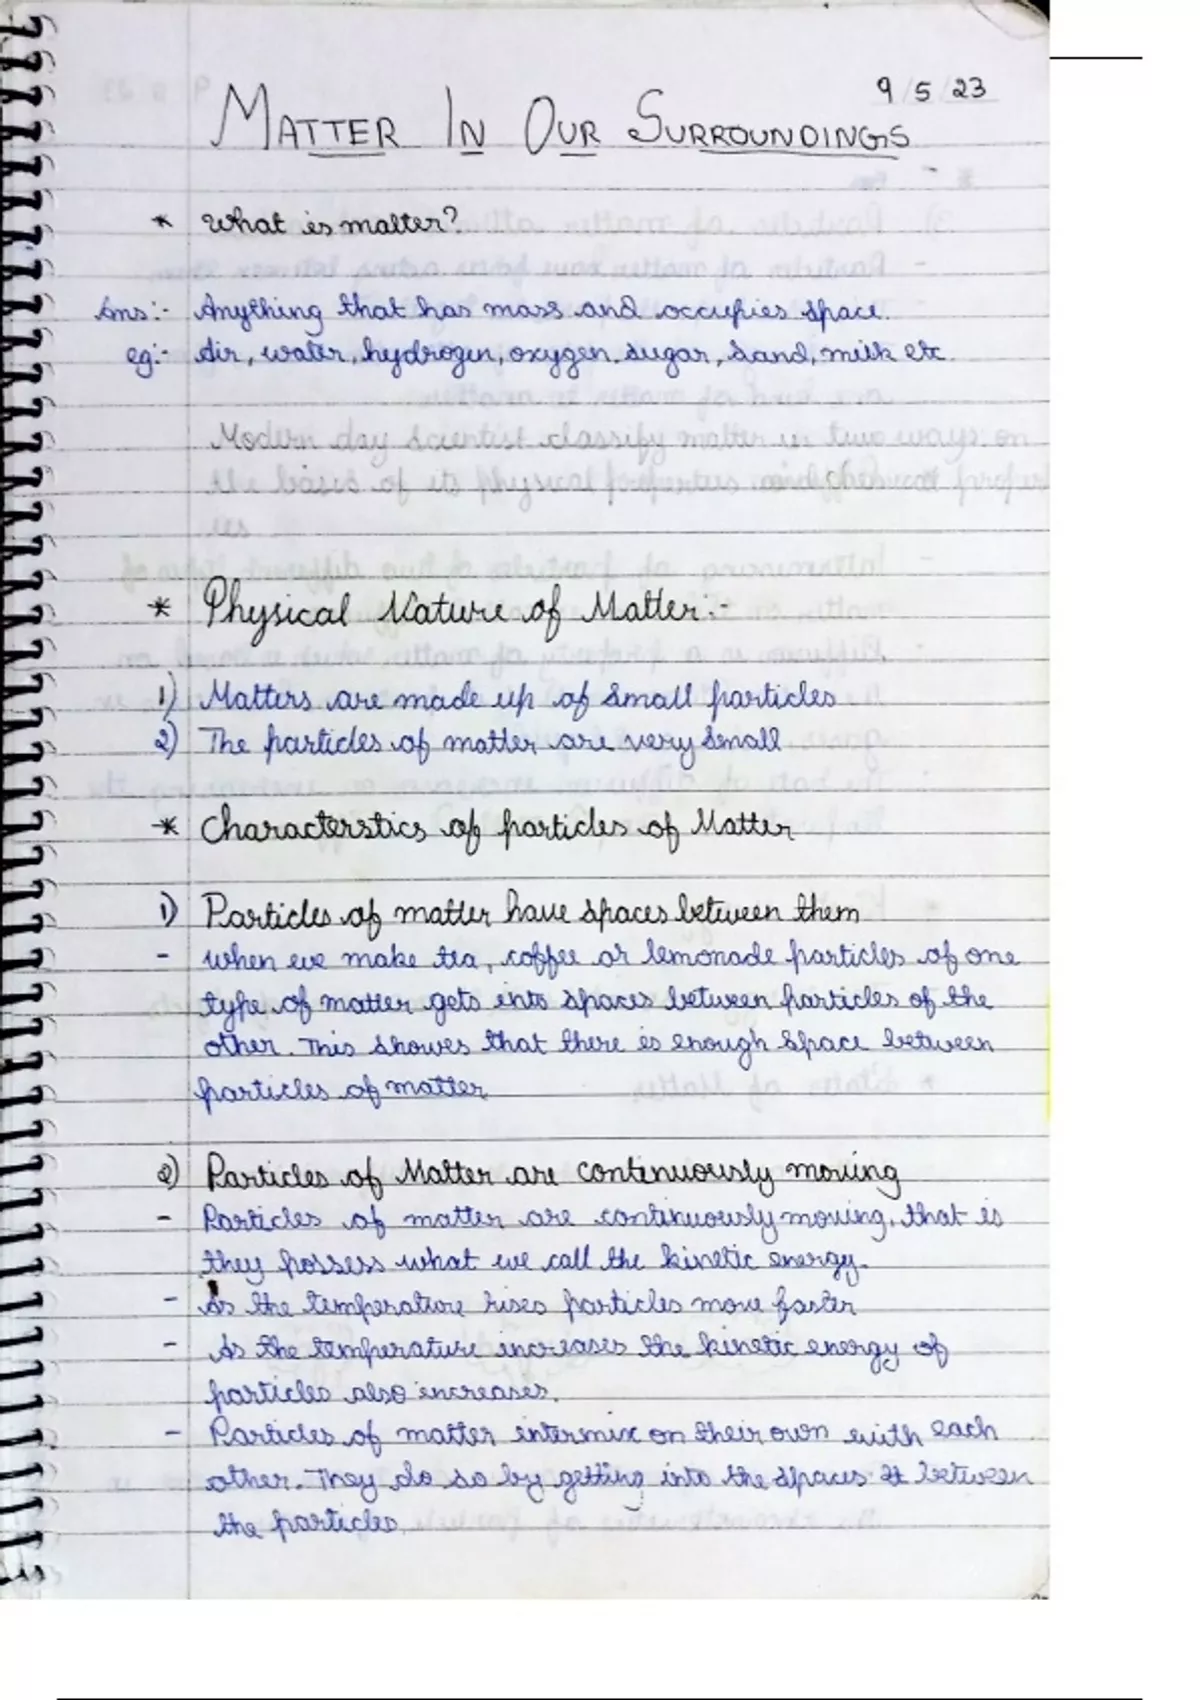 9/5/23
MATTER IN OUR SURROUNDINGS
* What is matter?
Ans:- Anything that has mass and occupies space.
eg:- Air, water, hydrogen, oxygen, sugar, sand, milk etc.
Modern day scientist classify matter in two ways on
the basis of its physical properties and
* Physical Nature of Matter:-
1) Matters are made up of small particles
2) The particles of matter are very small
* Characterstics of particles of Matter
1) Particles of matter have spaces between them
- when we make tea, coffee or lemonade particles of one
type of matter gets into spaces between particles of the
other. This showes that there is enough space between
particles of matter
2) Particles of Matter are continuously moving
- Particles of matter are continuously moving, that is
they possess what we call the kinetic energy.
- As the temperature rises particles move faster
- As the temperature increases the kinetic energy of
particles also increases.
- Particles of matter intermix on their own with each
other. They do so by getting into the spaces between
the particles.